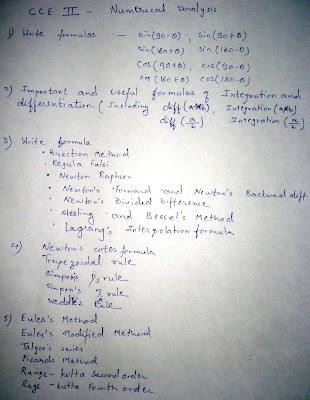 CCE II - Numrical analysis
1) Write formulas - sin(90-θ), sin(90+θ)
sin(180+θ) sin(180-θ)
Cos(90+θ), cos(90-θ)
cos(180+θ) cos(180-θ)
2) Important and useful formulas of Integration and
differentiation. (Including diff(a*b), Integration(a*b)
diff(a/b) Integration(a/b)
3) Write formula
• Bisection Method
• Regula Falsi
• Newton Raphson
• Newton's forward and Newton's Backward diff.
• Newton's Divided Difference
• Sterling and Bessel's Method
• Lagrang's Interpolation formula
4) Newton's cotes formula
Trapezoidal rule
Simpson's 1/3 rule
Simpson's 3/8 rule
Weddle's Rule
5) Euler's Method
Euler's Modified Method
Talyor's seies
Picards Method
Runge-kutta Second order
Runge-kutta Fourth order